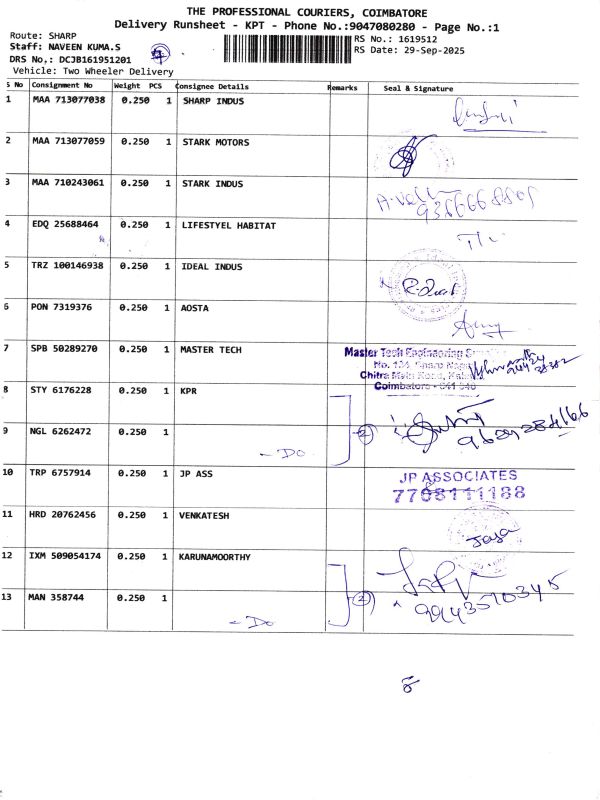 THE PROFESSIONAL COURIERS, COIMBATORE
Delivery Runsheet - KPT - Phone No.:9047080280 - Page No.:1
Route: SHARP
RS No.: 1619512
Staff: NAVEEN KUMA.S
RS Date: 29-Sep-2025
DRS No,: DCJB161951201
Vehicle: Two Wheeler Delivery
S No Consignment No Weight PCS Consignee Details Remarks Seal & Signature
1 MAA 713077038 0.250 1 SHARP INDUS
2 MAA 713077059 0.250 1 STARK MOTORS
3 MAA 710243061 0.250 1 STARK INDUS
4 EDQ 25688464 0.250 1 LIFESTYEL HABITAT
5 TRZ 100146938 0.250 1 IDEAL INDUS
6 PON 7319376 0.250 1 AOSTA
7 SPB 50289270 0.250 1 MASTER TECH
Master Tech Engineering
Coimbatore
8 STY 6176228 0.250 1 KPR
9 NGL 6262472 0.250 1
- Do 2
10 TRP 6757914 0.250 1 JP ASS
JP ASSOCIATES
7708111188
11 HRD 20762456 0.250 1 VENKATESH
Jaya
12 IXM 509054174 0.250 1 KARUNAMOORTHY
13 MAN 358744 0.250 1
- Do 2
9943570345